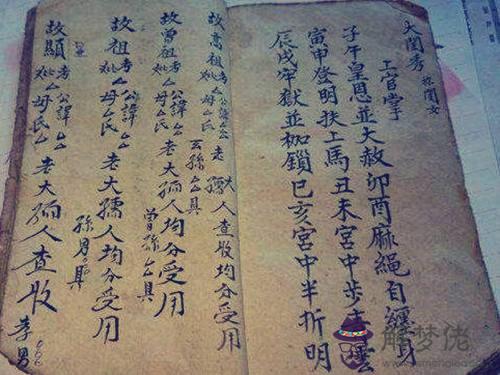 大閨秀 称閨女
上官掌
子午皇恩並大赦卯酉麻繩自纏身
寅申登明扶上馬丑未宮中步青雲
辰戌牢獄並枷鎖巳亥宮中半折明
故高祖考妣厶公諱厶厶母厶氏老大孺人查收均分受用
玄孫厶厶具
故曾祖考妣厶公諱厶厶母厶氏老大孺人均分受用
曾孫厶厶具
故祖考妣厶公諱厶厶母厶氏老大孺人均分受用
孫男具
故顯考妣厶公諱厶厶母厶氏老大孺人查收
孝男
解梦佬